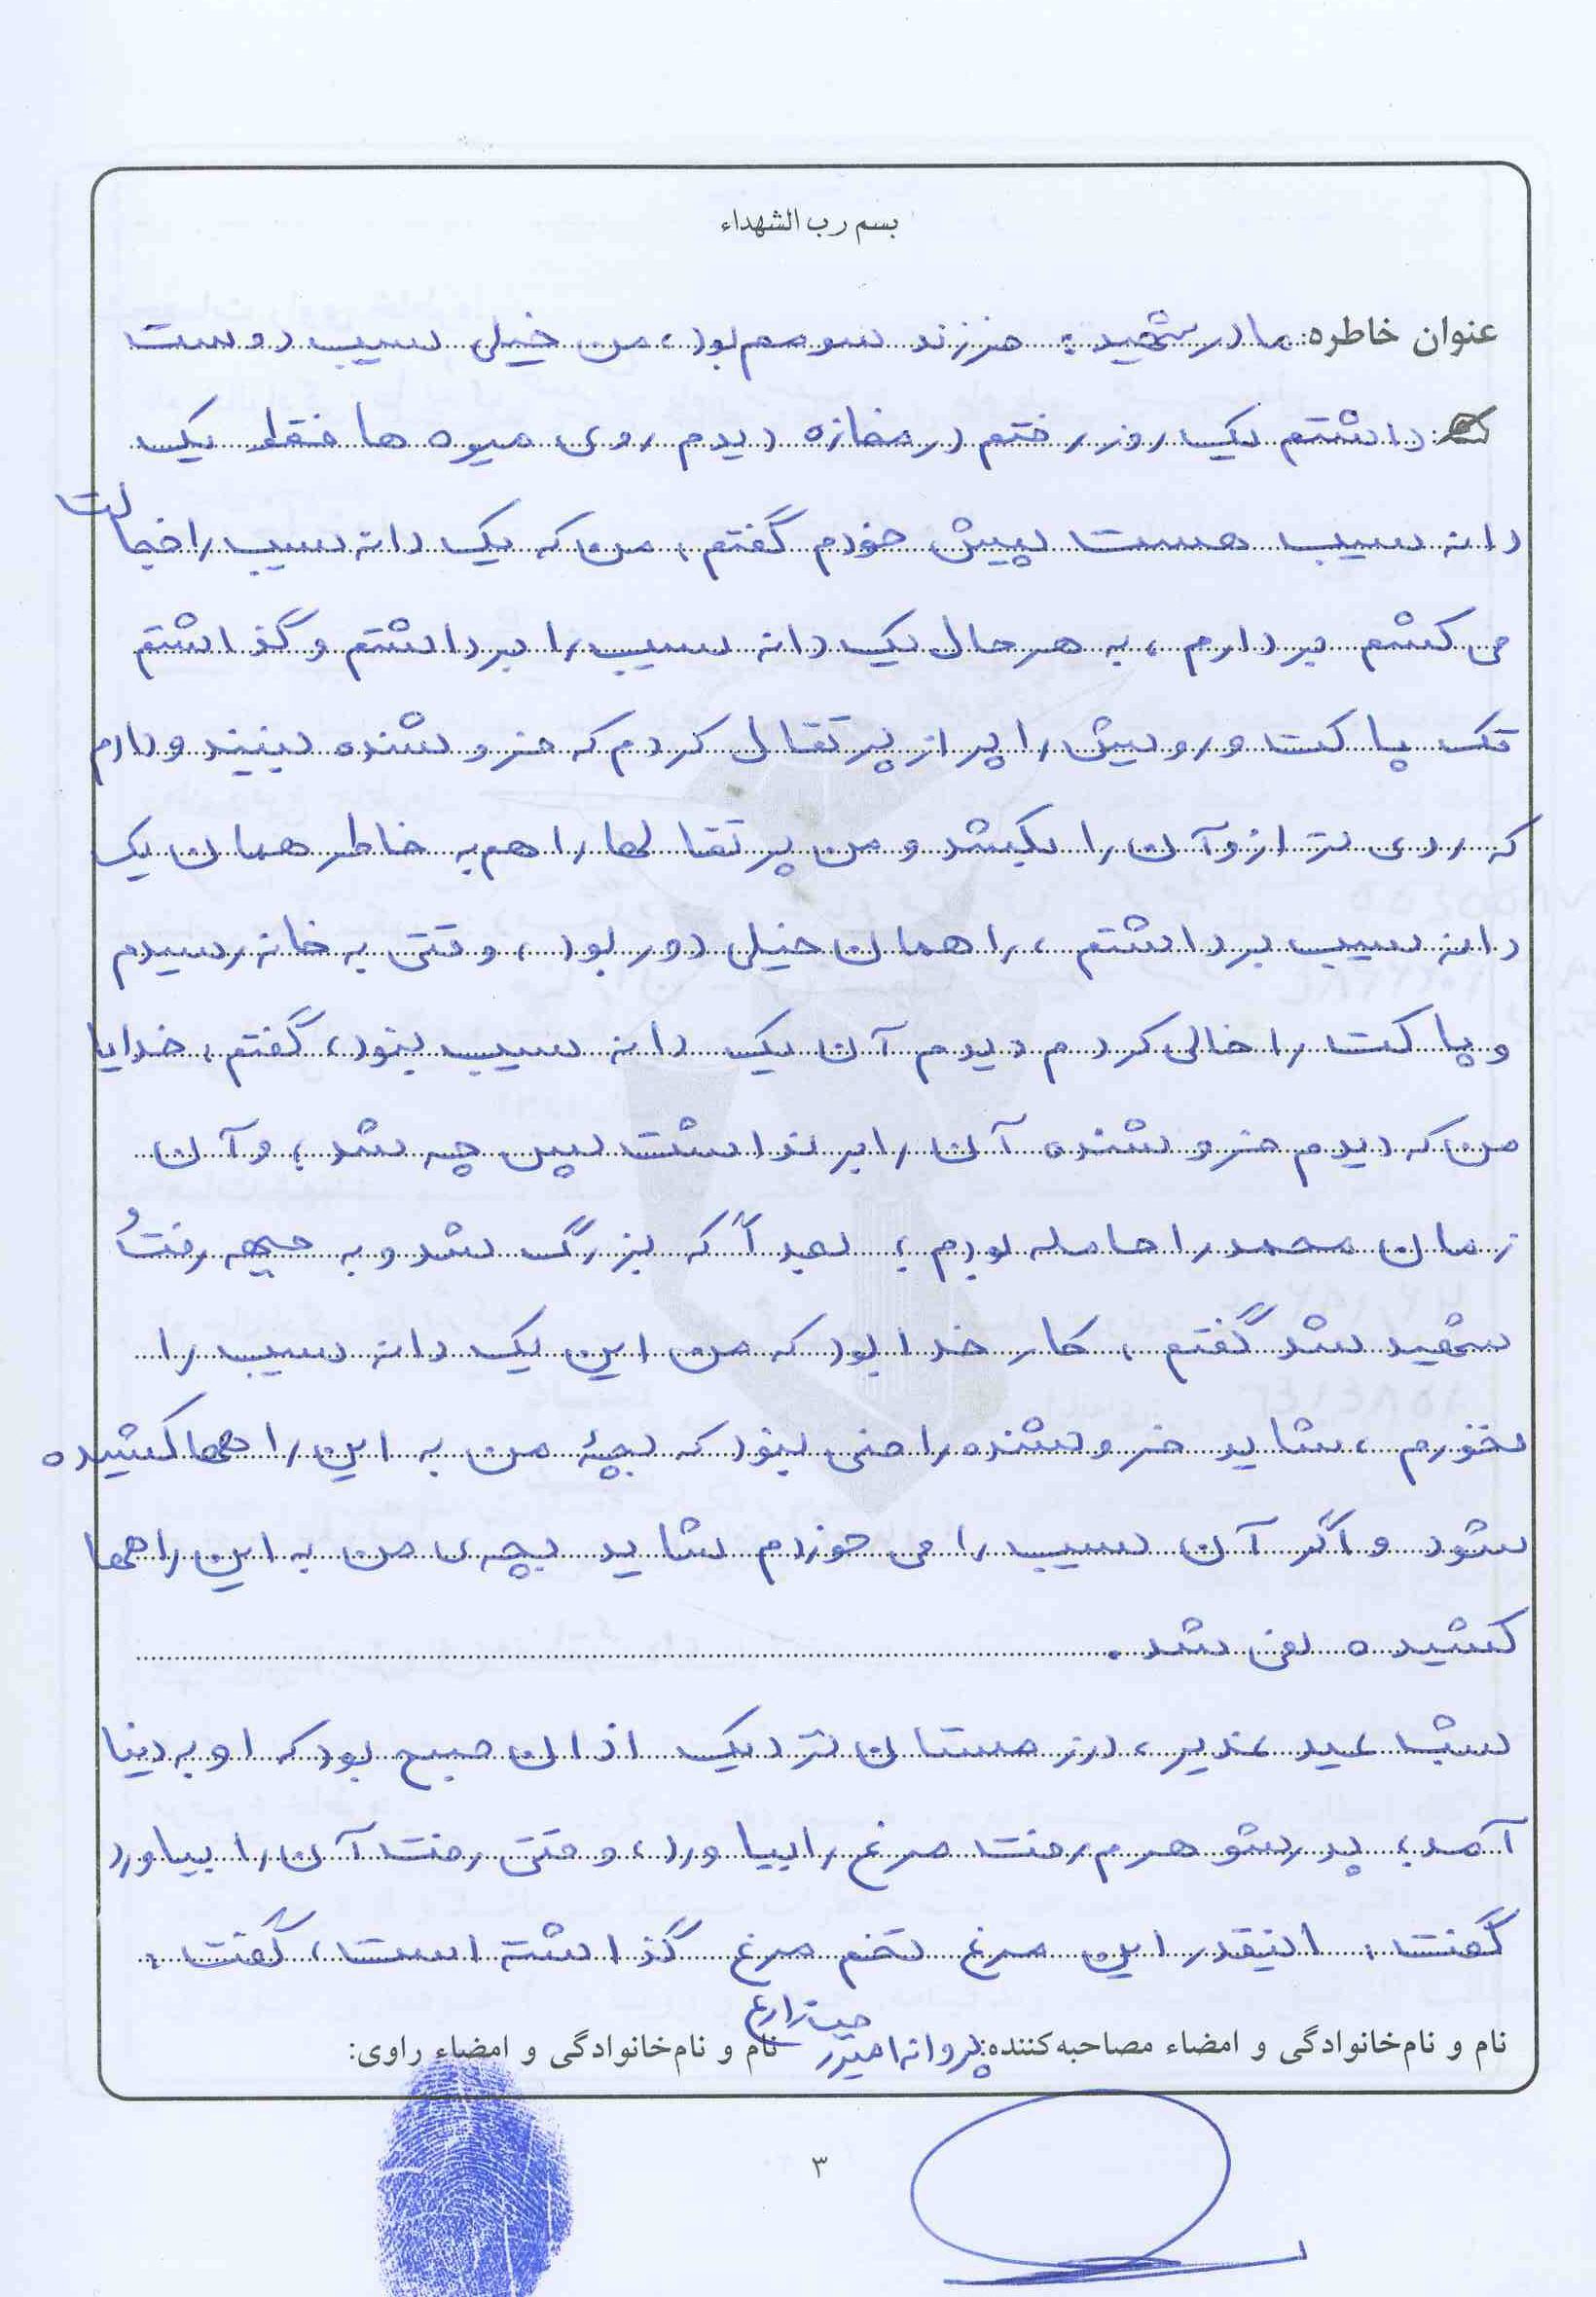 بسم رب الشهداء
عنوان خاطره: مادر شهید: فرزند سومم بود، من خیلی سیب دوست
داشتم یک روز رفتم در مغازه دیدم روی میوه ها فقط یک
دانه سیب هست پیش خودم گفتم: من که یک دانه سیب را خجالت
می کشم بردارم، به هر حال یک دانه سیب را برداشتم و گذاشتم
تک پاکت و رویش را پر از پرتقال کردم که فروشنده ببیند و دادم
که روی ترازو آن را بکشد و من پرتقالها را هم به خاطر همان یک
دانه سیب برداشتم، راهمان خیلی دور بود، وقتی به خانه رسیدم
و پاکت را خالی کردم دیدم آن یک دانه سیب بنود، گفتم: خدایا
من که دیدم فروشنده آن را برنداشت پس چه شد؛ و آن
زمان محمد را حامله بودم؛ بعداً که بزرگ شد و به جبهه رفت و
شهید شد گفتم: کار خدا بود که من این یک دانه سیب را
نخورم، شاید فروشنده راضی نبود که بچۀ من به این راهها کشیده
شود و اگر آن سیب را می خوردم شاید بچه ی من به این راهها
کشیده نمی شد.
شب عید غدیر، در زمستان نزدیک اذان صبح بود که او به دینا
آمد؛ پدر شوهرم رفت مرغ را بیاورد، وقتی رفت آن را بیاورد
گفت: اینقدر این مرغ تخم مرغ گذاشته است، گفت:
نام و نام‌خانوادگی و امضاء مصاحبه‌کننده: پروانه امیدی زارع
نام و نام‌خانوادگی و امضاء راوی:
۳